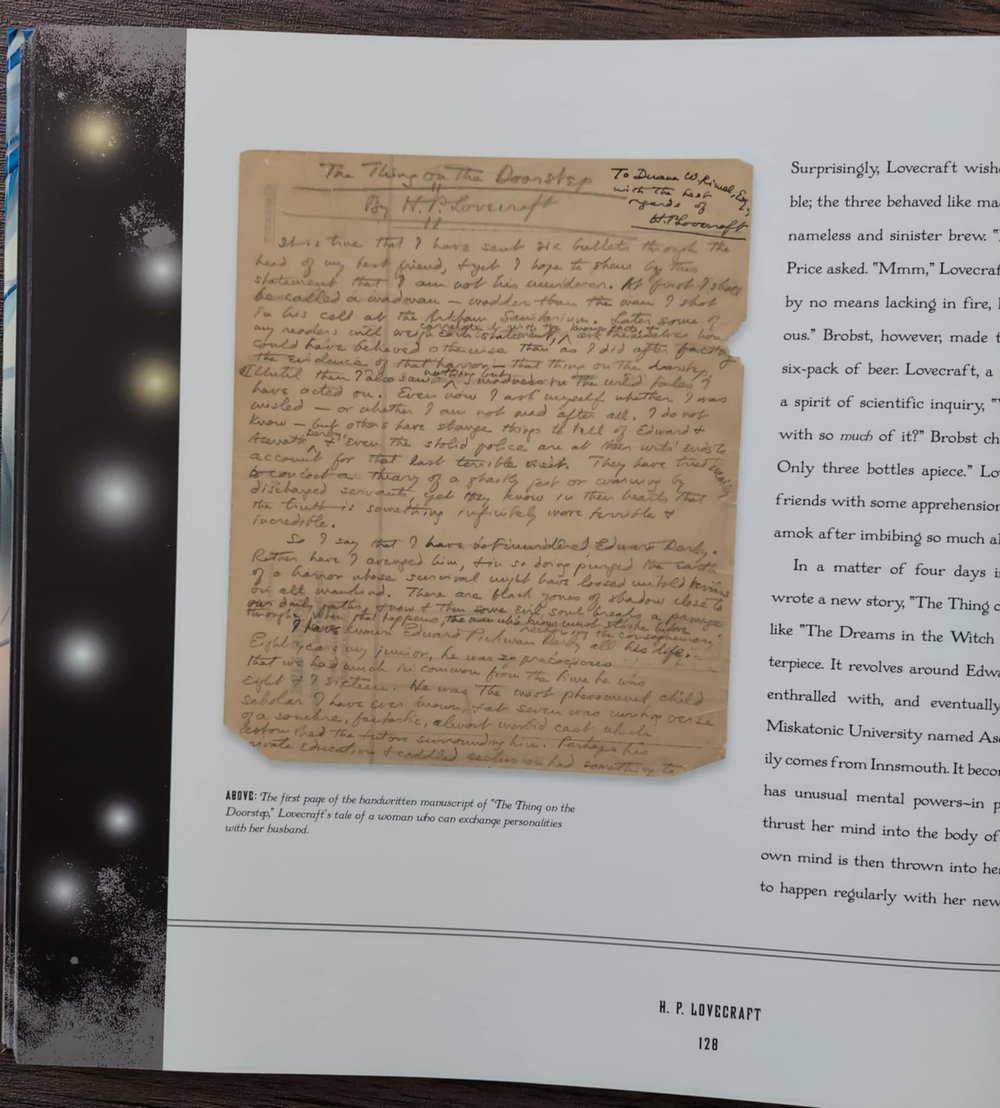 The Thing on the Doorstep
By H. P. Lovecraft
To Duane W. Rimel, Esq.
with the best
regards of
H P Lovecraft
It is true that I have sent six bullets through the
head of my best friend, & yet I hope to shew by this
statement that I am not his murderer. At first I shall
be called a madman — madder than the man I shot
in his cell at the Arkham Sanitarium. Later some of
my readers will weigh each statement, correlate it with the known facts, & ask themselves how I
could have believed otherwise than as I did after facing
the evidence of that horror — that thing on the doorstep.
Until then I also saw nothing but madness in the wild tales I
have acted on. Even now I ask myself whether I was
misled — or whether I am not mad after all. I do not
know — but others have strange things to tell of Edward &
Asenath Derby, & even the stolid police are at their wits' ends to
account for that last terrible visit. They have tried weakly
to concoct a theory of a ghastly jest or warning by
discharged servants, yet they know in their hearts that
the truth is something infinitely more terrible &
incredible.
So I say that I have not murdered Edward Derby.
Rather have I avenged him, & in so doing purged the earth
of a horror whose survival might have loosed untold terrors
on all mankind. There are black zones of shadow close to
our daily paths, & now & then some evil soul breaks a passage
through. When that happens, the man who knows must strike before
reckoning the consequences.
I have known Edward Pickman Derby all his life.
Eight years my junior, he was so precocious
that we had much in common from the time he was
eight & I sixteen. He was the most phenomenal child
scholar I have ever known, & at seven was writing verse
of a sombre, fantastic, almost morbid cast which
astonished the tutors surrounding him. Perhaps his
private education & coddled seclusion had something to
ABOVE: The first page of the handwritten manuscript of "The Thing on the
Doorstep," Lovecraft's tale of a woman who can exchange personalities
with her husband.
Surprisingly, Lovecraft wish
ble; the three behaved like ma
nameless and sinister brew. "
Price asked. "Mmm," Lovecraf
by no means lacking in fire,
ous." Brobst, however, made t
six-pack of beer. Lovecraft, a
a spirit of scientific inquiry, "
with so much of it?" Brobst ch
Only three bottles apiece." Lo
friends with some apprehension
amok after imbibing so much al
In a matter of four days i
wrote a new story, "The Thing o
like "The Dreams in the Witch
terpiece. It revolves around Edwa
enthralled with, and eventually
Miskatonic University named Ase
ily comes from Innsmouth. It becom
has unusual mental powers–in p
thrust her mind into the body of
own mind is then thrown into her
to happen regularly with her new
H. P. LOVECRAFT
128